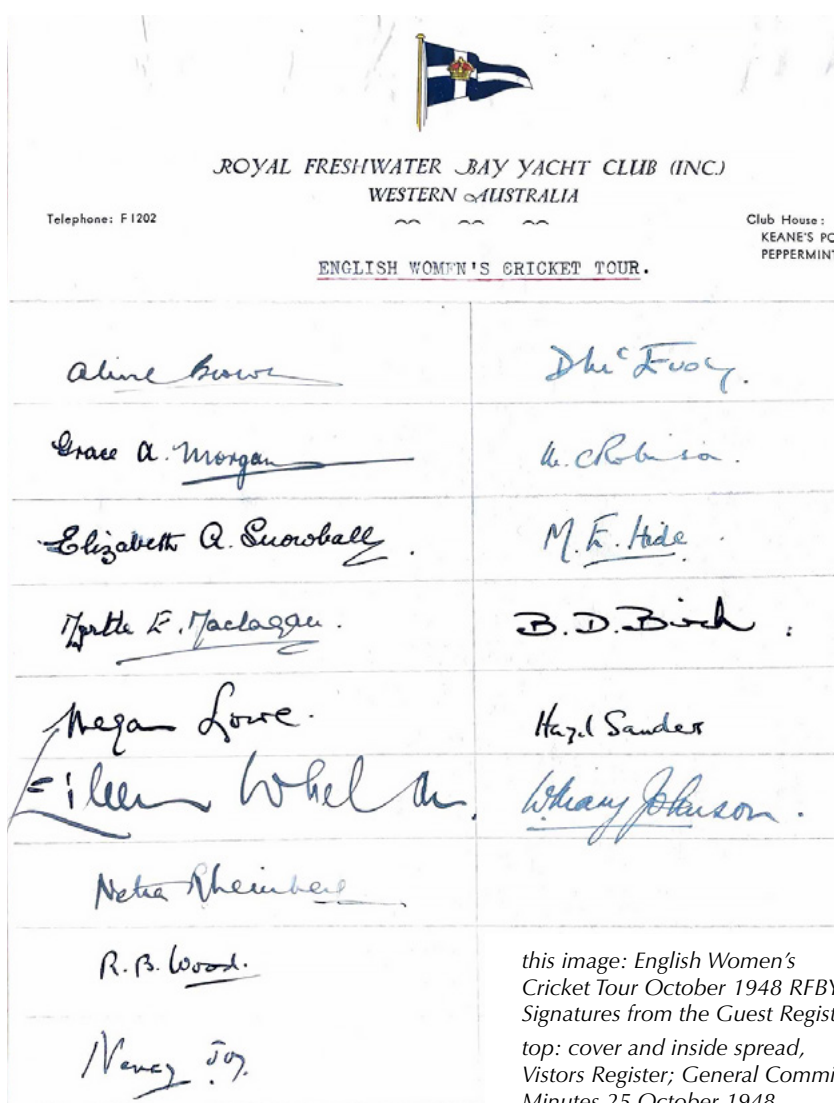 ROYAL FRESHWATER BAY YACHT CLUB (INC.)
WESTERN AUSTRALIA
Telephone: F1202
Club House:
KEANE'S PO
PEPPERMINT
ENGLISH WOMEN'S CRICKET TOUR.
Aline Brown
Grace A. Morgan
Elizabeth A. Snowball.
Myrtle E. Maclagan.
Megan Lowe.
Eileen Whelan.
Netta Rheinberg
R.B. Wood.
Nancy Joy.
D McEvoy.
M. C Robinson.
M. E. Hide.
B. D. Birch.
Hazel Sanders
Johnson.
this image: English Women's
Cricket Tour October 1948 RFBY
Signatures from the Guest Regist
top: cover and inside spread,
Vistors Register; General Commi
Minutes 25 October 1948